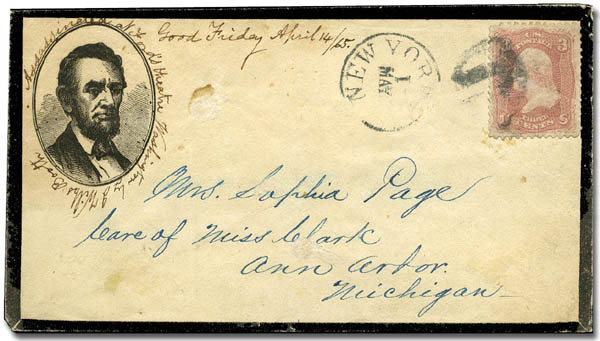 Assassinated at Ford's theatre Washington by J Wilkes Booth
Good Friday April 14/65.
NEW YORK
MAY
1
U.S. POSTAGE
3
THREE
CENTS
3
Mrs. Sophia Page
Care of Miss Clark
Ann Arbor.
Michigan